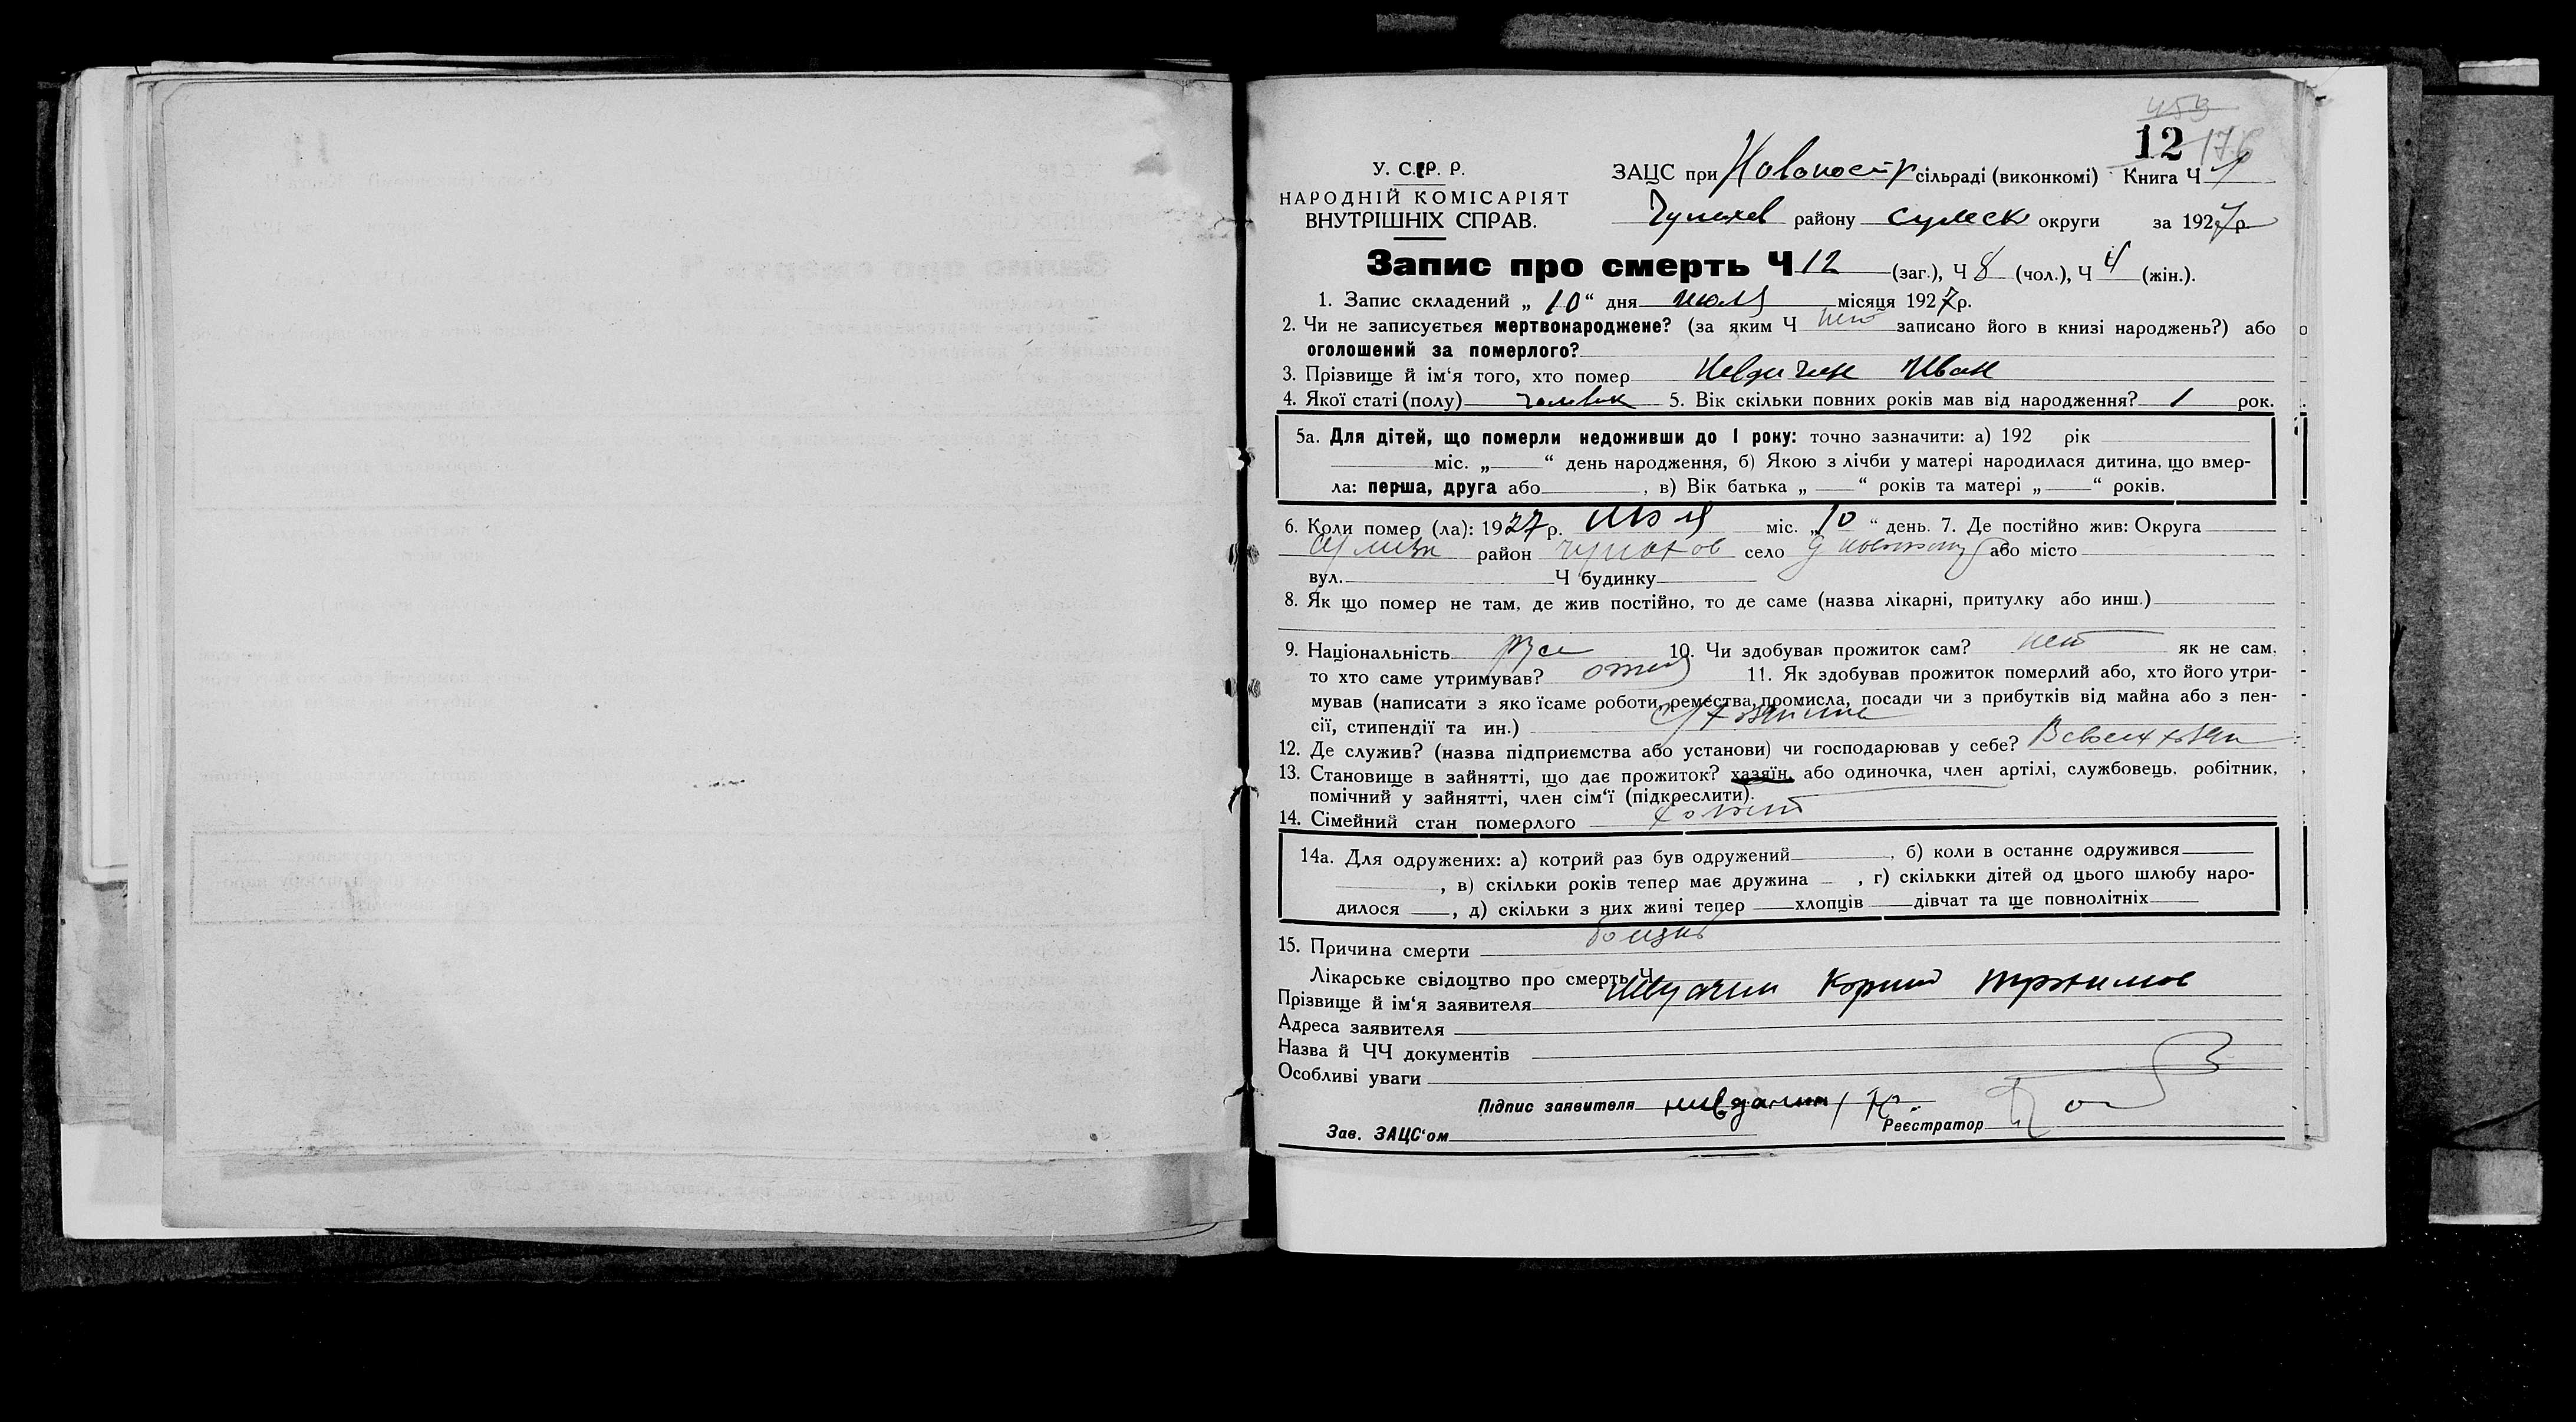 453
12 176
У. С. Р. Р.
НАРОДНІЙ КОМІСАРІЯТ
ВНУТРІШНІХ СПРАВ.
ЗАЦС при сільраді (виконкомі) Книга Ч 1
району сумск округи за 1927 р.
Запис про смерть Ч 12 (заг.), Ч 8 (чол.), Ч 4 (жін.).
1. Запис складений „ 10 “ дня июля місяця 1927 р.
2. Чи не записується мертвонароджене? (за яким Ч нет записано його в книзі народжень?) або
оголошений за померлого?
3. Прізвище й ім‘я того, хто помер Иван
4. Якої статі (полу) 5. Вік скільки повних років мав від народження? 1 рок.
5а. Для дітей, що померли недоживши до 1 року: точно зазначити: а) 192 рік
міс. „ “ день народження, б) Якою з лічби у матері народилася дитина, що вмер-
ла: перша, друга або , в) Вік батька „ “ років та матері „ “ років.
6. Коли помер (ла): 1927 р. июля міс. „ 10 “ день. 7. Де постійно жив: Округа
район село або місто
вул. Ч будинку
8. Як що помер не там, де жив постійно, то де саме (назва лікарні, притулку або инш.)
9. Національність рус 10. Чи здобував прожиток сам? нет як не сам,
то хто саме утримував? отец 11. Як здобував прожиток померлий або, хто його утри-
мував (написати з яко їсаме роботи, ремества, промисла, посади чи з прибутків від майна або з пен-
сії, стипендії та ин.)
12. Де служив? (назва підприємства або установи) чи господарював у себе?
13. Становище в зайнятті, що дає прожиток? хазяїн, або одиночка, член артілі, службовець, робітник,
помічний у зайнятті, член сім‘ї (підкреслити).
14. Сімейний стан померлого холост
14а. Для одружених: а) котрий раз був одружений , б) коли в останнє одружився
, в) скільки років тепер має дружина , г) скількки дітей од цього шлюбу наро-
дилося , д) скільки з них живі тепер хлопців дівчат та ще повнолітніх
15. Причина смерти
Лікарське свідоцтво про смерть Ч
Прізвище й ім‘я заявителя
Адреса заявителя
Назва й ЧЧ документів
Особливі уваги
Підпис заявителя
Зав. ЗАЦС‘ом Реєстратор